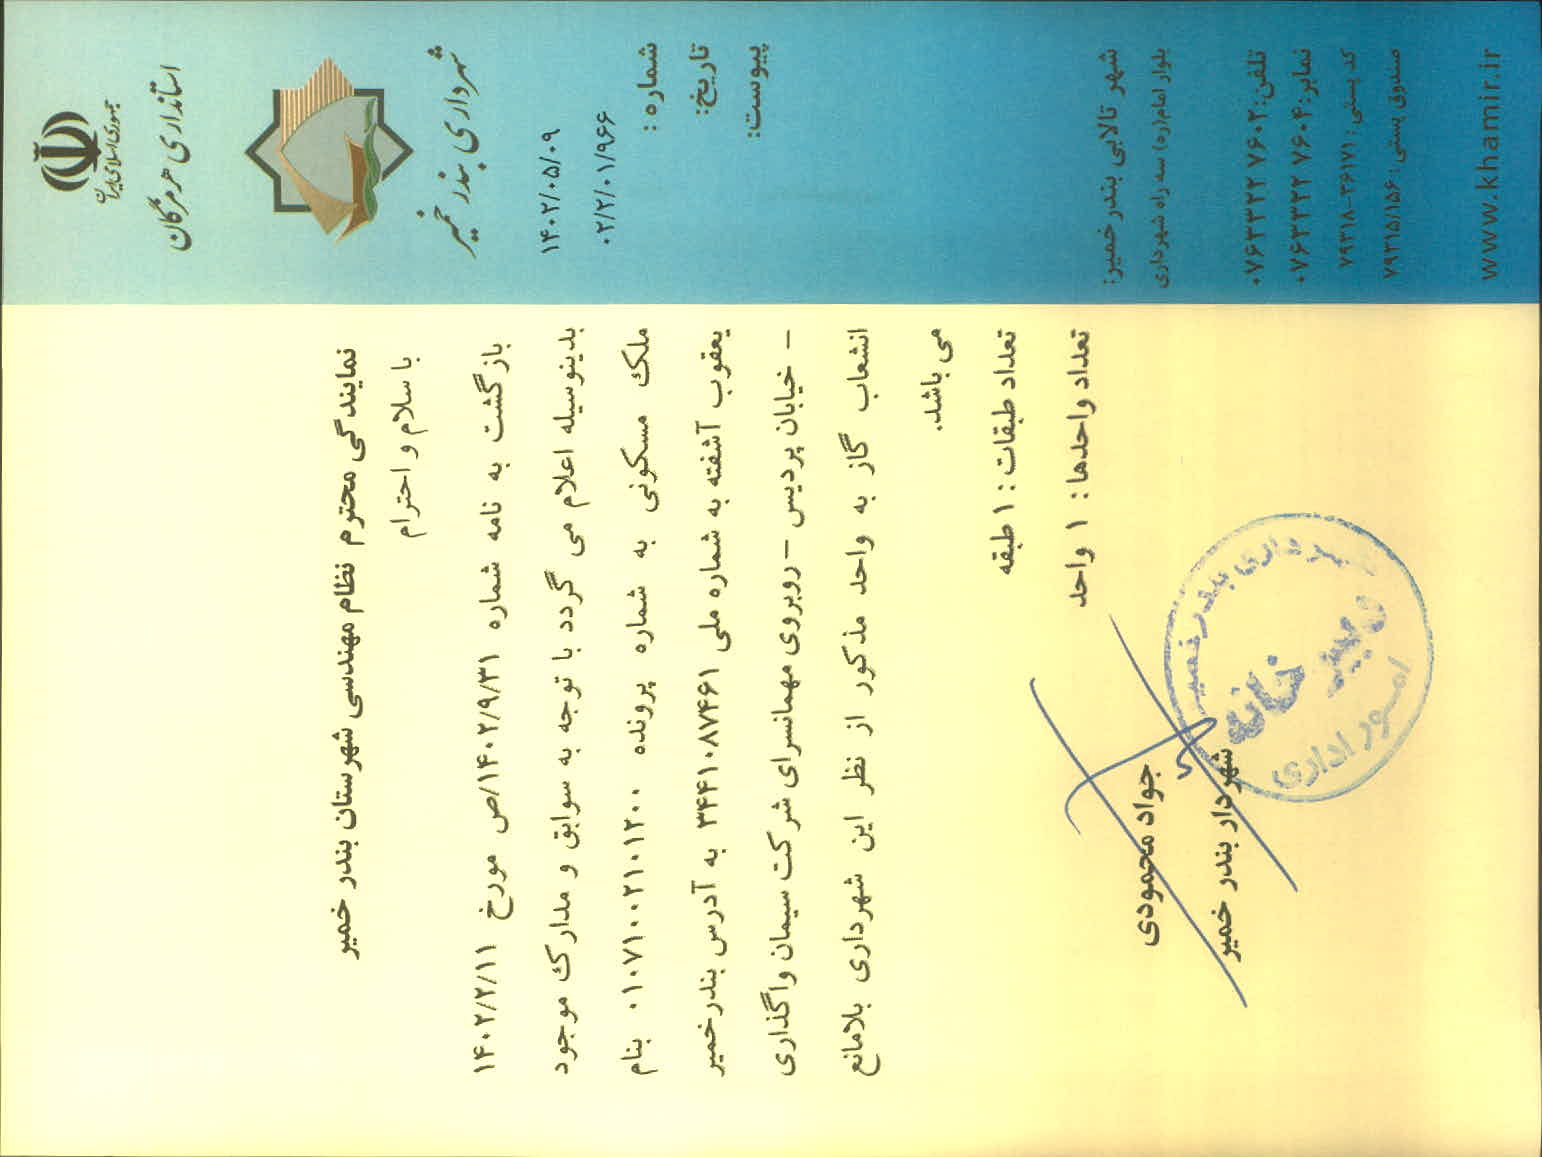 جمهوری اسلامی ایران
استانداری هرمزگان
شهرداری بندر خمیر
۱۴۰۲/۰۵/۰۹
۰۲/۲/۰۱/۹۶۶
شماره :
تاریخ:
پیوست:
نمایندگی محترم نظام مهندسی شهرستان بندر خمیر
با سلام و احترام
بازگشت به نامه شماره ۱۴۰۲/۹/۳۱/ص مورخ ۱۴۰۲/۲/۱۱
بدینوسیله اعلام می گردد با توجه به سوابق و مدارک موجود
ملک مسکونی به شماره پرونده ۰۱۰۷۱۰۰۲۱۰۱۲۰۰ بنام
یعقوب آشفته به شماره ملی ۳۴۴۱۰۸۷۴۶۱ به آدرس بندرخمیر
– خیابان پردیس – روبروی مهمانسرای شرکت سیمان واگذاری
انشعاب گاز به واحد مذکور از نظر این شهرداری بلامانع
می باشد.
تعداد طبقات : ۱ طبقه
تعداد واحدها : ۱ واحد
جواد محمودی
شهردار بندر خمیر
شهرداری بندر خمیر
دبیر خانه
امور اداری
شهر تالابی بندر خمیر:
بلوار امام(ره) سه راه شهرداری
تلفن: ۰۷۶۳۳۲۲۷۶۰۲
نمابر: ۰۷۶۳۳۲۲۷۶۰۴
کد پستی: ۷۹۳۱۸-۳۶۱۷۱
صندوق پستی: ۷۹۳۱۵/۱۵۶
www.khamir.ir